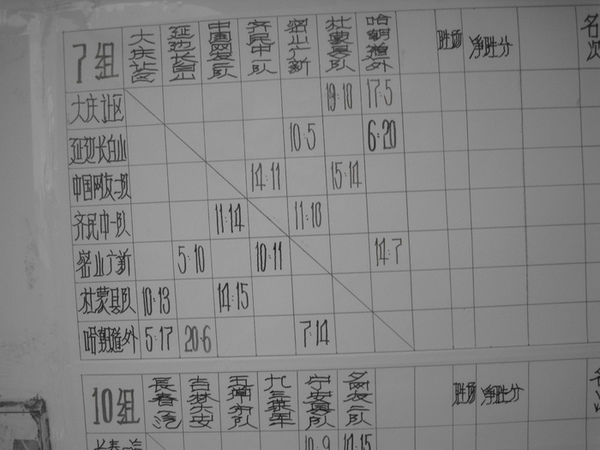 7组 大庆社区 延边长白山 中国网友二队 齐民中一队 密山广新 杜蒙县队 哈朝道外 胜场 净胜分 名次
大庆社区 19:10 17:5
延边长白山 10:5 6:20
中国网友二队 14:11 15:14
齐民中一队 11:14 11:10
密山广新 5:10 10:11 14:7
杜蒙县队 10:13 14:15
哈朝道外 5:17 20:6 7:14
10组 长春一汽 宁安县队 名网友二队 胜场 净胜分
长春一汽 10:9 14:15